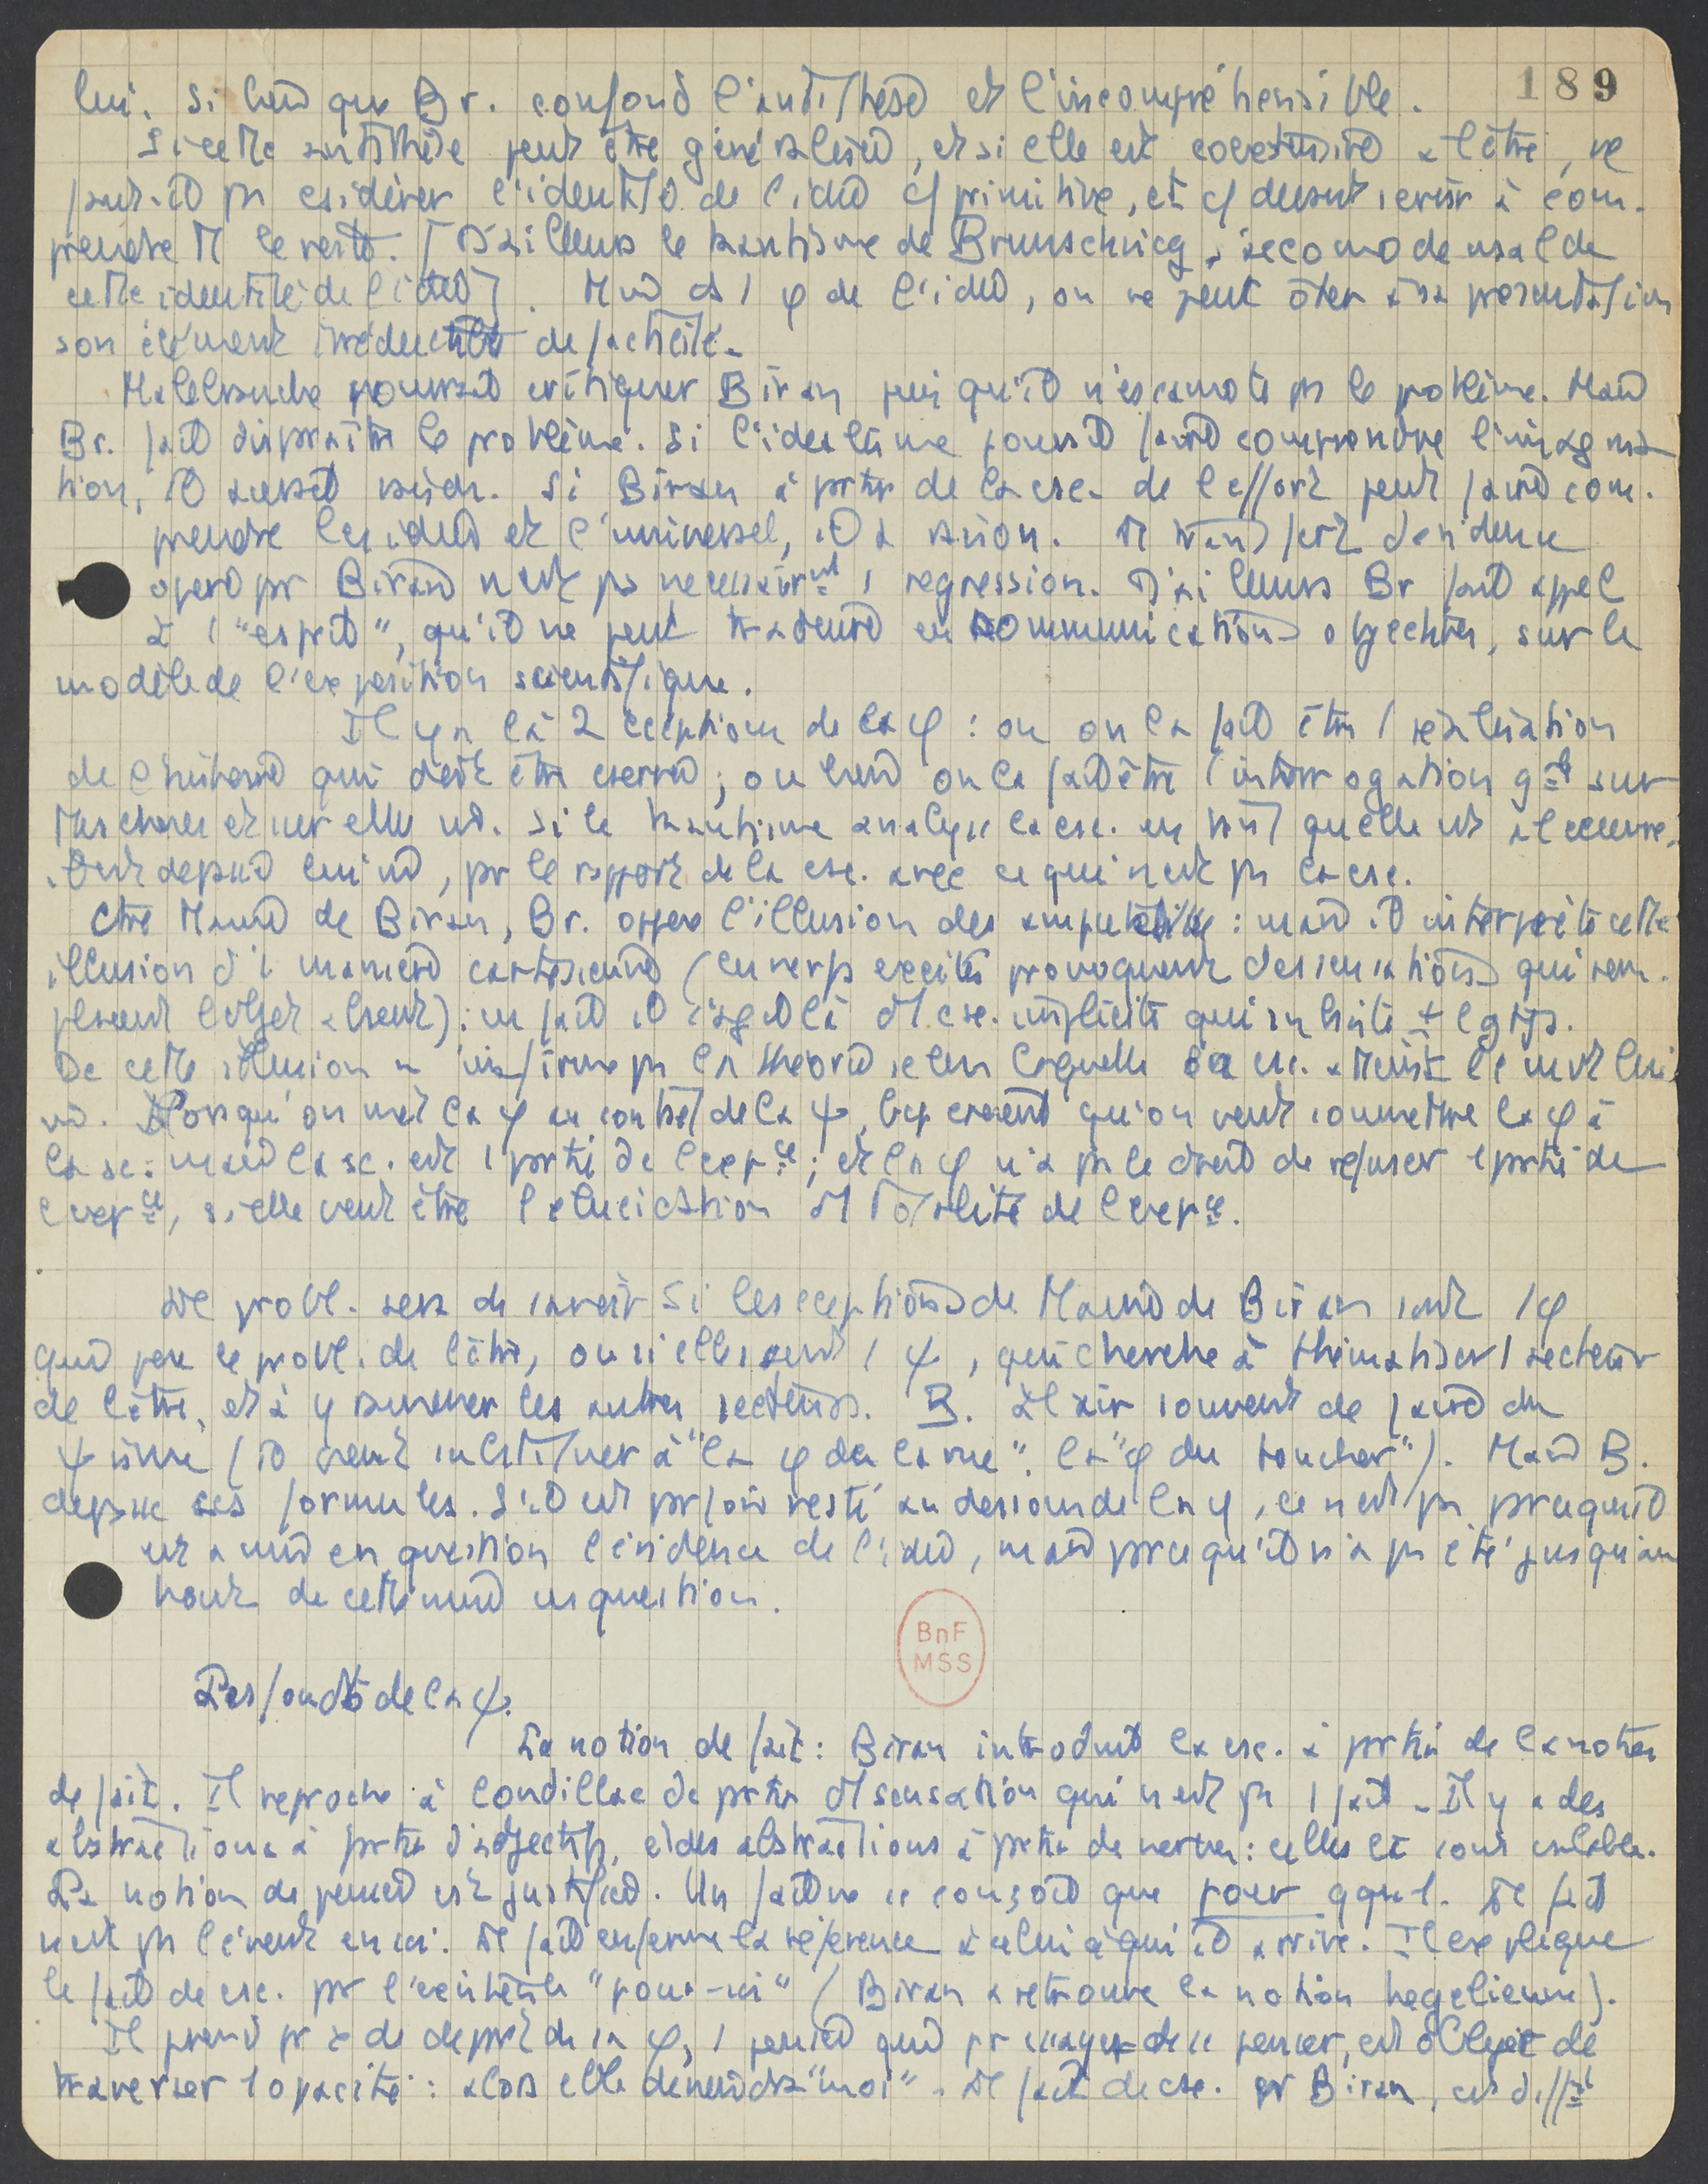 189
lui. Si bien que Br. confond l'antithèse et l'incompréhensible.
Si cette antithèse peut être généralisée, et si elle est coextensive à l'être, ne
faut-il ps csidérer l'identité de l'idée c/ primitive, et c/ devant servir à com-
prendre tt le reste. [D'ailleurs le kantisme de Brunschvicg s'accomode mal de
cette identité de l'idée]. Mais ds 1 φ de l'idée, on ne peut ôter à sa présentation
son élément irréductible de facticité.
Malebranche pourrait critiquer Biran puisqu'il n'escamote ps le problème. Mais
Br. fait disparaître le problème. Si l'idéalisme pouvait faire comprendre l'imagina
tion, il aurait raison. Si Biran à partir de la csc. de l'effort peut faire com-
prendre les idées et l'universel, il a raison. tt transfert d'évidence
opéré pr Biran n'est ps nécessairmt 1 régression. D'ailleurs Br fait appel
à l'"esprit", qu'il ne peut traduire en communications objectives, sur le
modèle de l'exposition scientifique.
Il y a là 2 cceptions de la φ : ou on la fait être 1 réalisation
de l'universel qui doit être exercée ; ou bien on la fait être l'interrogation gale sur
ttes choses et sur elle mê. Si le kantisme analyse la csc. en tant qu'elle est à l'oeuvre,
il est dépassé lui mê, pr le rapport de la csc. avec ce qui n'est ps la csc.
Ctre Maine de Biran, Br. oppose l'illusion des amputés : mais il interprète cette
illusion d'1 manière cartésienne (cu nerfs excités provoquent des sensations qui rem-
placent l'objet absent) : en fait il s'agit là d'1 csc. implicite qui subsiste + lgtps.
De cette illusion n'infirme ps la théorie selon laquelle la csc. atteint le mvt lui
mê. Lorsqu'on met la φ au contact de la ψ, les gens croient qu'on veut soumettre la φ à
la sc : mais la sc. est 1 partie de l'expce ; et la φ n'a ps le droit de refuser 1 partie de
l'expce, si elle veut être l'élucidation d'1 totalité de l'expce.
Le probl. sera de savoir si les cceptions de Maine de Biran sont 1 φ
qui pose le probl. de l'être, ou si elles sont 1 ψ, qui cherche à thématiser 1 secteur
de l'être, et à y ramener les autres secteurs. B. à l'air souvent de faire du
ψisme (il veut substituer à "la φ de la vue", la "φ du toucher"). Mais B.
dépasse ses formules. S'il est prfois resté au dessous de la φ, ce n'est ps prce qu'il
est a mis en question l'évidence de l'idée, mais prce qu'il n'a ps été jusqu'au
bout de cette mise en question.
Les fondts de la ψ.
La notion de fait : Biran introduit la csc. à prtir de la notion
de fait. Il reproche à Condillac de prtir d'1 sensation qui n'est ps 1 fait. Il y a des
abstractions à prtir d'adjectifs, et des abstractions à prtir de verbes : celles là sont valables.
La notion de pensée est justifiée. Un fait ne se conçoit que pour qqu'1. Le fait
n'est ps l'évent en soi. Le fait enferme la référence à celui à qui il arrive. Il explique
le fait de csc. pr l'existence "pour-soi" (Biran a retrouvé la notion hegelienne).
Il prend pr pt de déprt de sa φ, 1 pensée qui pr essayer de se penser, est obligée de
traverser 1 opacité : alors elle deviendra "moi". Le fait de csc. pr Biran, est différt
BnF
MSS